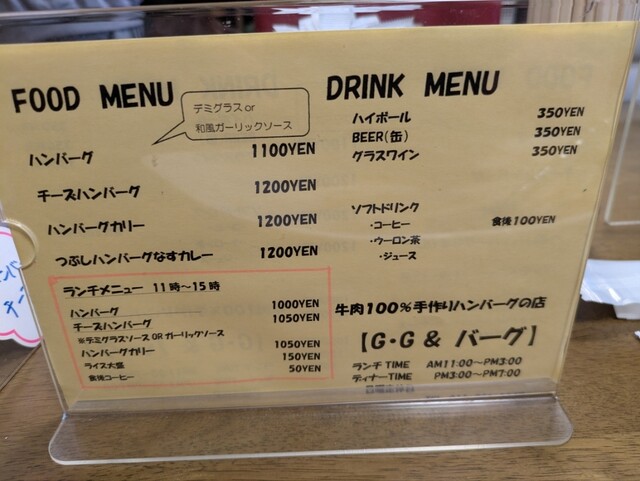 FOOD MENU
デミグラス or
和風ガーリックソース
ハンバーグ 1100YEN
チーズハンバーグ 1200YEN
ハンバーグカリー 1200YEN
つぶしハンバーグなすカレー 1200YEN
ランチメニュー 11時~15時
ハンバーグ 1000YEN
チーズハンバーグ 1050YEN
※デミグラスソース OR ガーリックソース
ハンバーグカリー 1050YEN
ライス大盛 150YEN
食後コーヒー 50YEN
DRINK MENU
ハイボール 350YEN
BEER(缶) 350YEN
グラスワイン 350YEN
ソフトドリンク 食後100YEN
・コーヒー
・ウーロン茶
・ジュース
牛肉100%手作りハンバーグの店
【G・G & バーグ】
ランチTIME AM11:00~PM3:00
ディナーTIME PM3:00~PM7:00